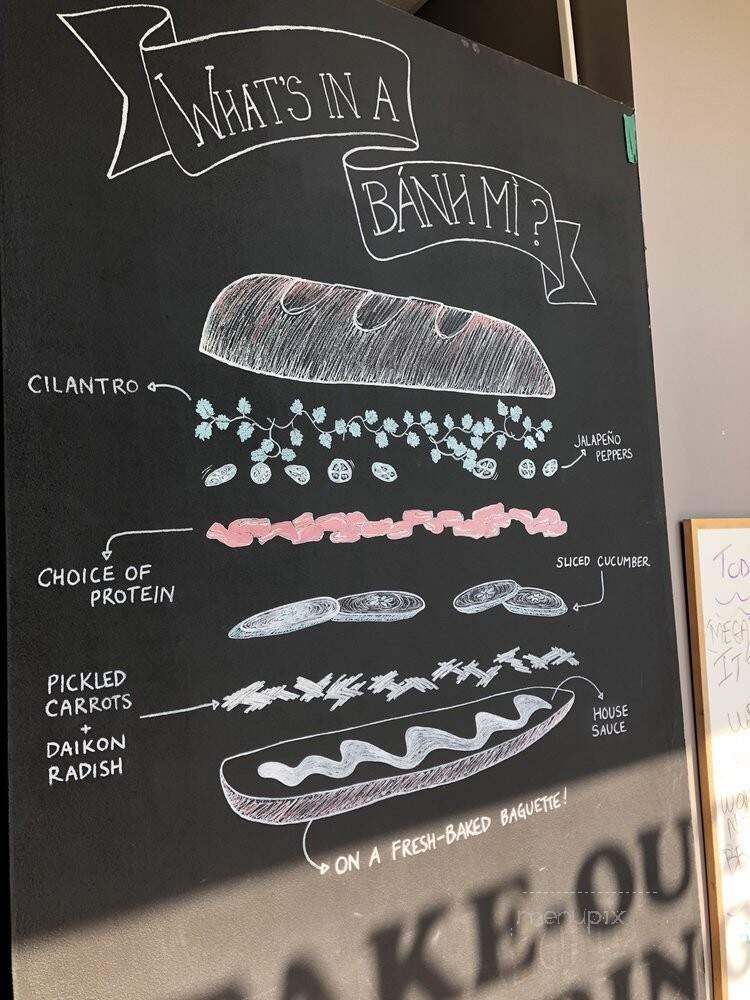 WHAT'S IN A
BÁNH MÌ?
CILANTRO
JALAPEÑO
PEPPERS
CHOICE OF
PROTEIN
SLICED CUCUMBER
PICKLED
CARROTS
+
DAIKON
RADISH
HOUSE
SAUCE
ON A FRESH-BAKED BAGUETTE!
TAKE OU
menupix